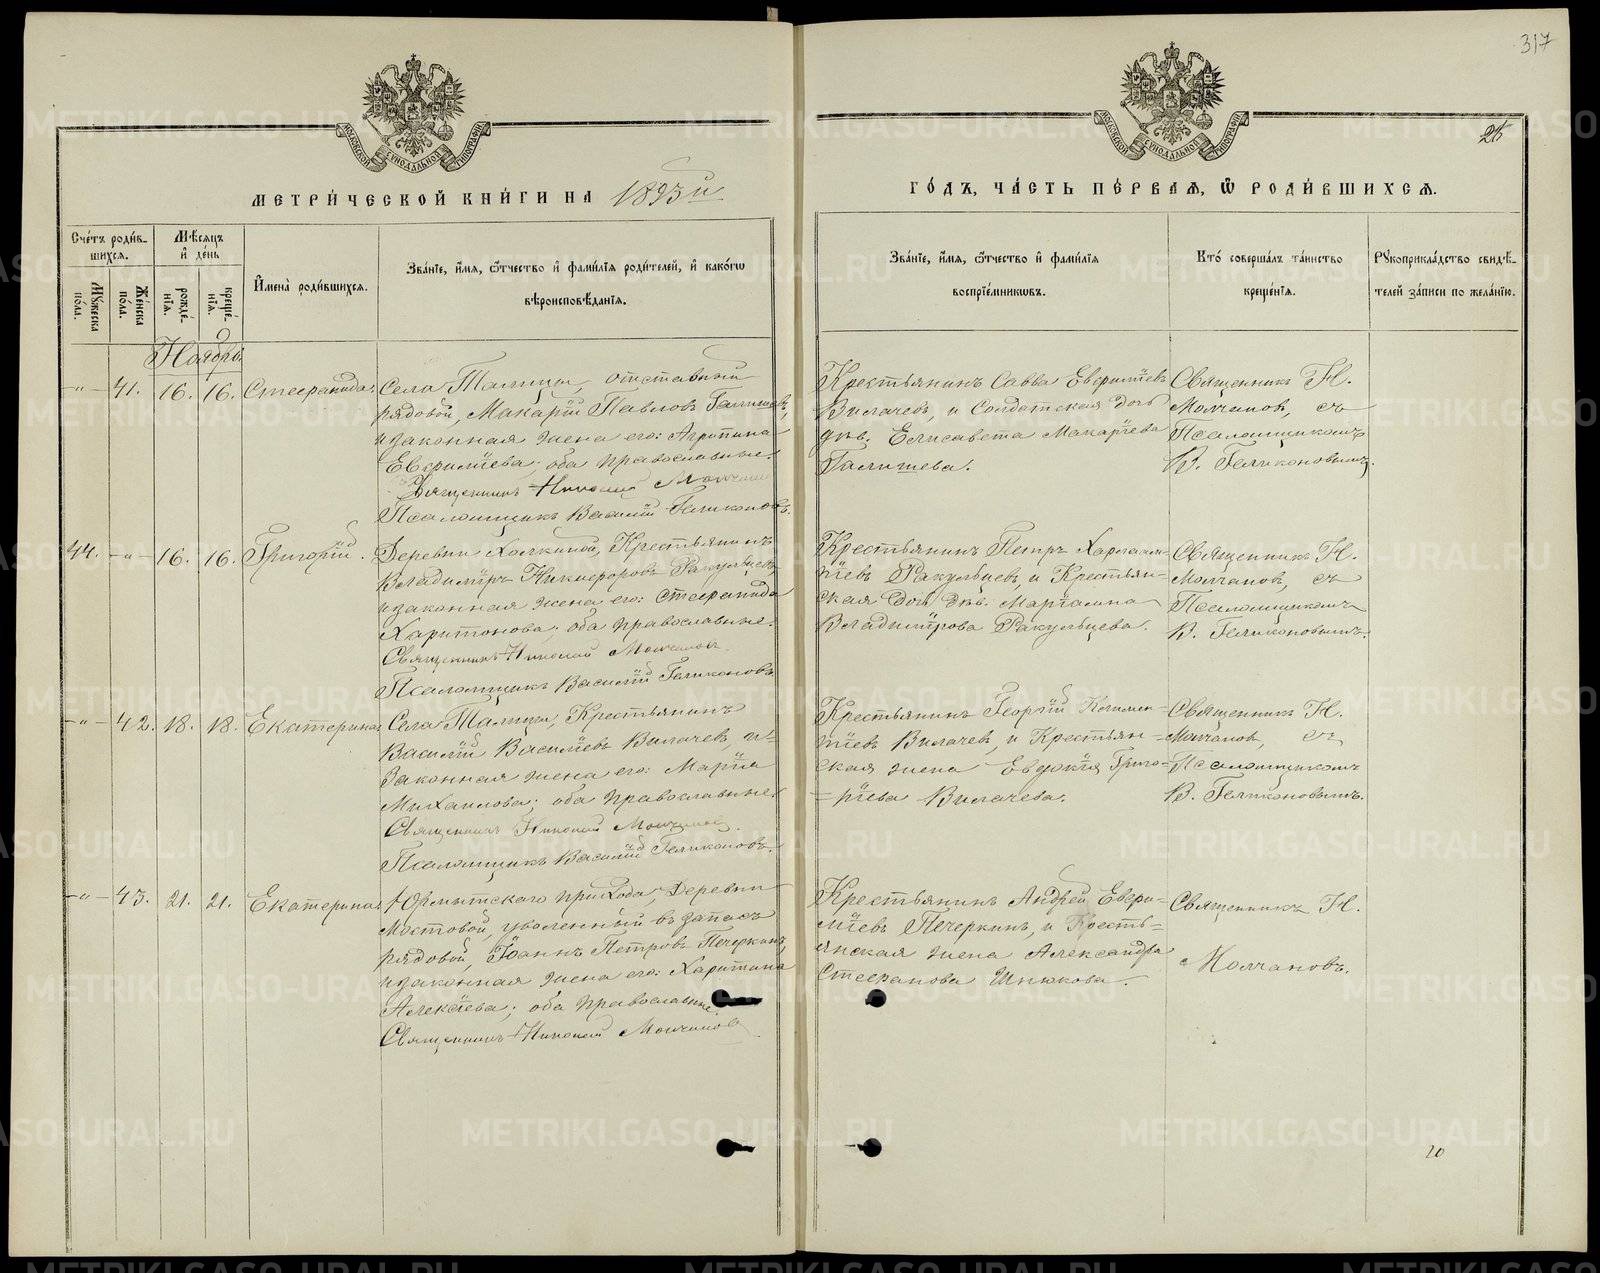 317
25
МОСКОВСКОЙ СѴНОДАЛЬНОЙ ТИПОГРАФІИ
МОСКОВСКОЙ СѴНОДАЛЬНОЙ ТИПОГРАФІИ
МЕТРИ́ЧЕСКОЙ КНИ́ГИ НА 1893й
ГО́ДЪ, ЧА́СТЬ ПЕ́РВАѦ, Ѽ РОДИ́ВШИХСѦ.
Сче́тъ роди́в-
шихсѧ.
Мꙋжеска по́ла.
Же́нска по́ла.
Мѣ́сѧцъ
и҆ де́нь
рожде́-
нїѧ.
креще́-
нїѧ.
И҆мена̀ роди́вшихсѧ.
Зва́нїе, и҆́мѧ, ѻ҆́тчество и҆ фами́лїѧ роди́телей, и҆ како́гѡ
вѣроисповѣ́данїѧ.
Зва́нїе, и҆́мѧ, ѻ҆́тчество и҆ фами́лїѧ
воспрїе́мникѡвъ.
Кто̀ соверша́лъ та́инство
креще́нїѧ.
Рꙋкоприкла́дство свидѣ́-
телей за́писи по жела́нїю.
Ноябрь
-„- 41. 16. 16. Стефанида.
Села Талицы, отставный
рядовой, Макарій Павловъ Галишевъ,
и законная жена его: Агрипина
Евфиміева; оба православные.
Священникъ Николай Молчановъ
Псаломщикъ Василій Геликоновъ.
Крестьянинъ Савва Евфиміевъ
Вилачевъ, и Солдатская дочь
дѣв. Елисавета Макаріева
Галишева.
Священникъ Н.
Молчановъ, съ
Псаломщикомъ
В. Геликоновымъ.
44. -„- 16. 16. Григорій.
Деревни Холкиной, Крестьянинъ
Владиміръ Никифоровъ Ракульцевъ,
и законная жена его: Стефанида
Харитонова; оба православные.
Священникъ Николай Молчановъ.
Псаломщикъ Василій Геликоновъ
Крестьянинъ Петръ Харлам-
піевъ Ракульцевъ, и Крестьян-
ская дочь дѣв. Маріамна
Владимірова Ракульцева.
Священникъ Н.
Молчановъ, съ
Псаломщикомъ
В. Геликоновымъ.
-„- 42. 18. 18. Екатерина
Села Талицы, Крестьянинъ
Василій Василіевъ Вилачевъ, и
законная жена его: Марія
Михаилова; оба православные.
Священникъ Николай Молчановъ.
Псаломщикъ Василій Геликоновъ.
Крестьянинъ Георгій Климен-
тіевъ Вилачевъ, и Крестьян-
ская жена Евдокія Григо-
=ріева Вилачева.
Священникъ Н.
Молчановъ, съ
Псаломщикомъ
В. Геликоновымъ.
-„- 43. 21. 21. Екатерина
Юрмытскаго прихода, Деревни
Мостовой, уволенный въ запасъ
рядовой, Іоаннъ Петровъ Печеркинъ,
и законная жена его: Харитина
Алексіева; оба православные.
Священникъ Николай Молчановъ
Крестьянинъ Андрей Евфи-
міевъ Печеркинъ, и Кресть=
янская жена Александра
Стефанова Шнюкова.
Священникъ Н.
Молчановъ.
20
METRIKI.GASO-URAL.RU